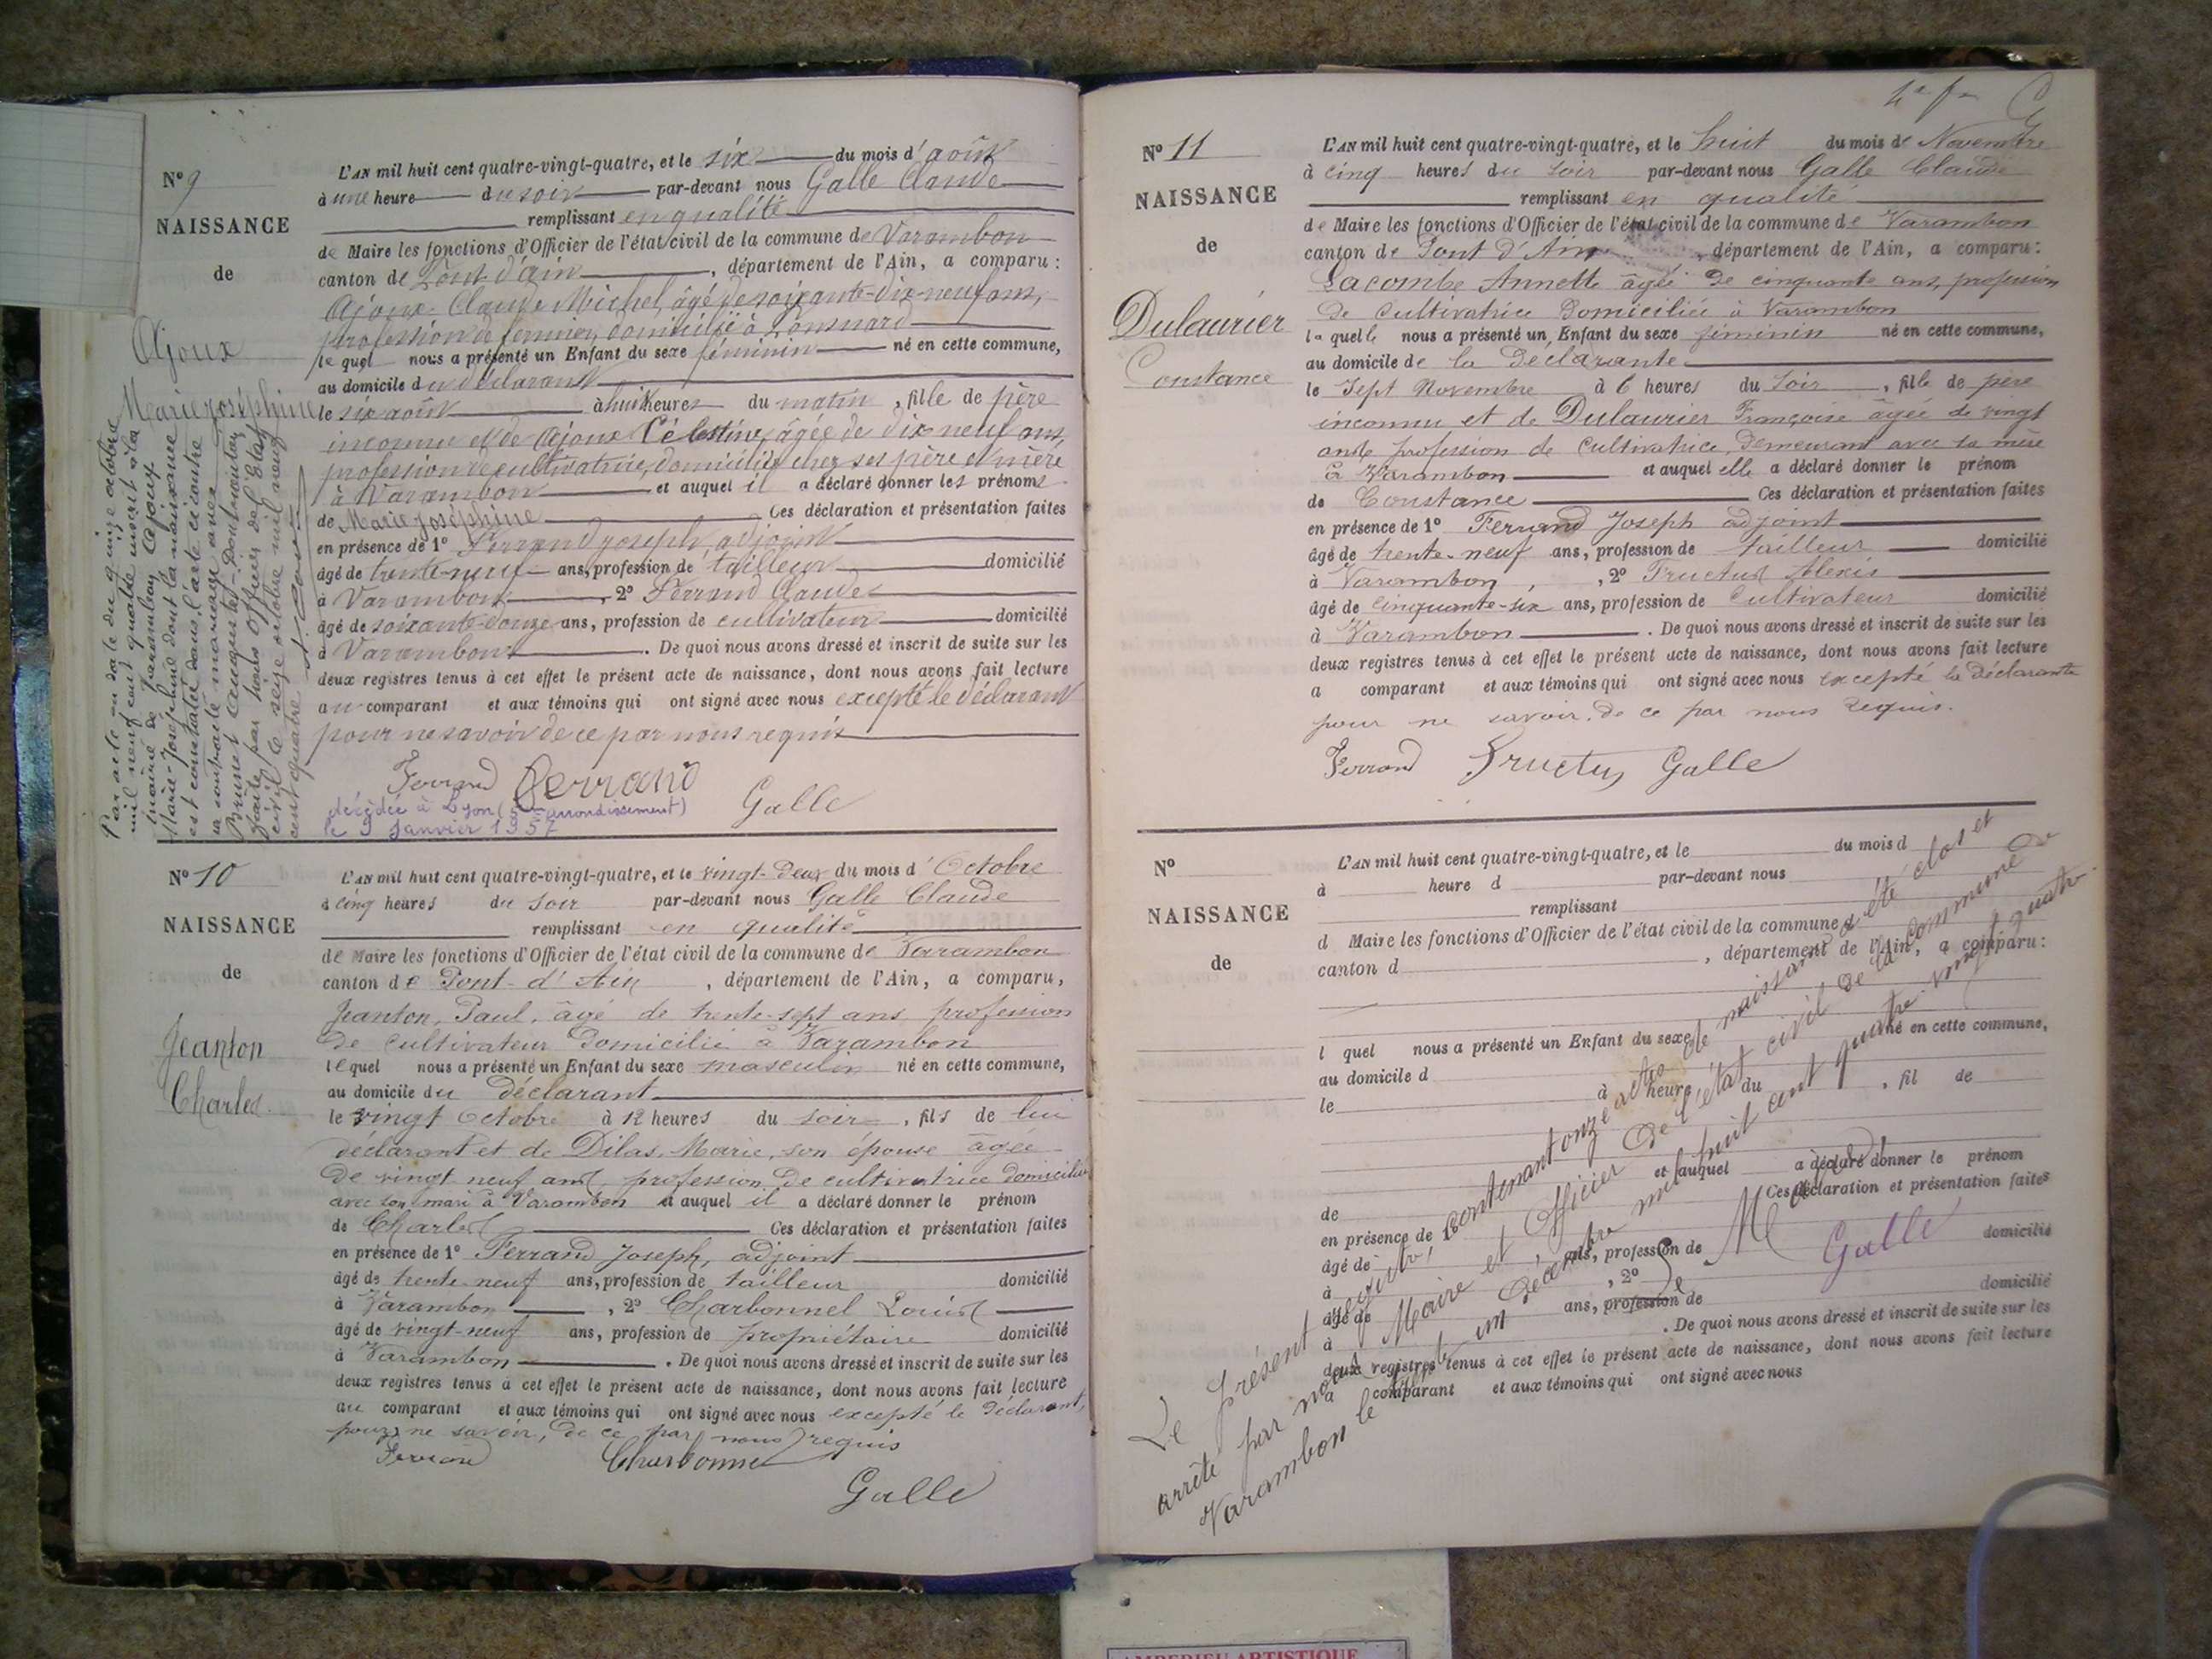 N° 9
NAISSANCE
de
Ajoux
Marie Joséphine
Par acte en date du quinze octobre
mil neuf cent quatre inscrit à la
mairie de Varambon Ajoux
Marie-Joséphine dont la naissance
est constatée dans l'acte ci contre
a contracté mariage avec
Brunet
faite par nous Officier de l'Etat
civil le seize octobre mil neuf
cent quatre
L'AN mil huit cent quatre-vingt-quatre, et le six du mois d'août
à une heure du soir par-devant nous Galle Claude
remplissant en qualité
de Maire les fonctions d'Officier de l'état civil de la commune de Varambon
canton de Pont d'ain, département de l'Ain, a comparu :
Ajoux Claude Michel, âgé de soixante-dix-neuf ans,
profession de fermier, domicilié à
le quel nous a présenté un Enfant du sexe féminin né en cette commune,
au domicile du déclarant
le six août à huit heures du matin, fille de père
inconnu et de Ajoux Célestine, âgée de dix neuf ans,
profession de cultivatrice, domiciliée chez ses père et mère
à Varambon et auquel il a déclaré donner les prénoms
de Marie Joséphine Ces déclaration et présentation faites
en présence de 1° Ferrand joseph, adjoint
âgé de trente-neuf ans, profession de tailleur domicilié
à Varambon, 2° Ferrand Claude
âgé de soixante-douze ans, profession de cultivateur domicilié
à Varambon. De quoi nous avons dressé et inscrit de suite sur les
deux registres tenus à cet effet le présent acte de naissance, dont nous avons fait lecture
au comparant et aux témoins qui ont signé avec nous excepté le déclarant
pour ne savoir de ce par nous requis
Ferrand Ferrand
Galle
décédée à Lyon (5e arrondissement)
le 9 Janvier 1957
N° 10
NAISSANCE
de
Jeanton
Charles
L'AN mil huit cent quatre-vingt-quatre, et le vingt-deux du mois d'Octobre
à cinq heures du soir par-devant nous Galle Claude
remplissant en qualité
de Maire les fonctions d'Officier de l'état civil de la commune de Varambon
canton de Pont-d'Ain, département de l'Ain, a comparu,
Jeanton, Paul, âgé de trente-sept ans, profession
de cultivateur domicilié à Varambon
le quel nous a présenté un Enfant du sexe masculin né en cette commune,
au domicile du déclarant
le vingt octobre à 12 heures du soir, fils de lui
déclarant et de Dilas, Marie, son épouse âgée
de vingt neuf ans, profession de cultivatrice domiciliée
avec son mari à Varambon et auquel il a déclaré donner le prénom
de Charles Ces déclaration et présentation faites
en présence de 1° Ferrand Joseph, adjoint
âgé de trente-neuf ans, profession de tailleur domicilié
à Varambon, 2° Charbonnel Louis
âgé de vingt-neuf ans, profession de propriétaire domicilié
à Varambon. De quoi nous avons dressé et inscrit de suite sur les
deux registres tenus à cet effet le présent acte de naissance, dont nous avons fait lecture
au comparant et aux témoins qui ont signé avec nous excepté le déclarant,
pour ne savoir, de ce par nous requis
Ferrand Charbonnel
Galle
N° 11
NAISSANCE
de
Dulaurier
Constance
L'AN mil huit cent quatre-vingt-quatre, et le huit du mois de Novembre
à cinq heures du soir par-devant nous Galle Claude
remplissant en qualité
de Maire les fonctions d'Officier de l'état civil de la commune de Varambon
canton de Pont d'Ain, département de l'Ain, a comparu :
Lacombe Annette âgée de cinquante ans, profession
de Cultivatrice Domiciliée à Varambon
la quelle nous a présenté un Enfant du sexe féminin né en cette commune,
au domicile de la Déclarante
le Sept Novembre à 6 heures du Soir, fille de père
inconnu et de Dulaurier Françoise âgée de vingt
ans profession de Cultivatrice, Demeurant avec sa mère
à Varambon et auquel elle a déclaré donner le prénom
de Constance Ces déclaration et présentation faites
en présence de 1° Ferrand Joseph adjoint
âgé de trente-neuf ans, profession de tailleur domicilié
à Varambon, 2° Fructus Alexis
âgé de cinquante-six ans, profession de Cultivateur domicilié
à Varambon. De quoi nous avons dressé et inscrit de suite sur les
deux registres tenus à cet effet le présent acte de naissance, dont nous avons fait lecture
a comparant et aux témoins qui ont signé avec nous excepté la déclarante
pour ne savoir, de ce par nous requis.
Ferrand Fructus Galle
N°
NAISSANCE
de
L'AN mil huit cent quatre-vingt-quatre, et le du mois d
à heure d par-devant nous
remplissant
d Maire les fonctions d'Officier de l'état civil de la commune d
canton d , département de l'Ain, a comparu :
l quel nous a présenté un Enfant du sexe né en cette commune,
au domicile d
le à heure du , fil de
et auquel a déclaré donner le prénom
de Ces déclaration et présentation faites
en présence de 1°
âgé de ans, profession de domicilié
à , 2°
âgé de ans, profession de domicilié
à . De quoi nous avons dressé et inscrit de suite sur les
deux registres tenus à cet effet le présent acte de naissance, dont nous avons fait lecture
a comparant et aux témoins qui ont signé avec nous
Le présent registre, contenant onze actes de naissance a été clos et
arrêté par nous Maire et Officier de l'état civil de la commune de
Varambon le trente un décembre mil huit cent quatre-vingt quatre.
Le Maire
Galle
AMBERIEU ARTISTIQUE